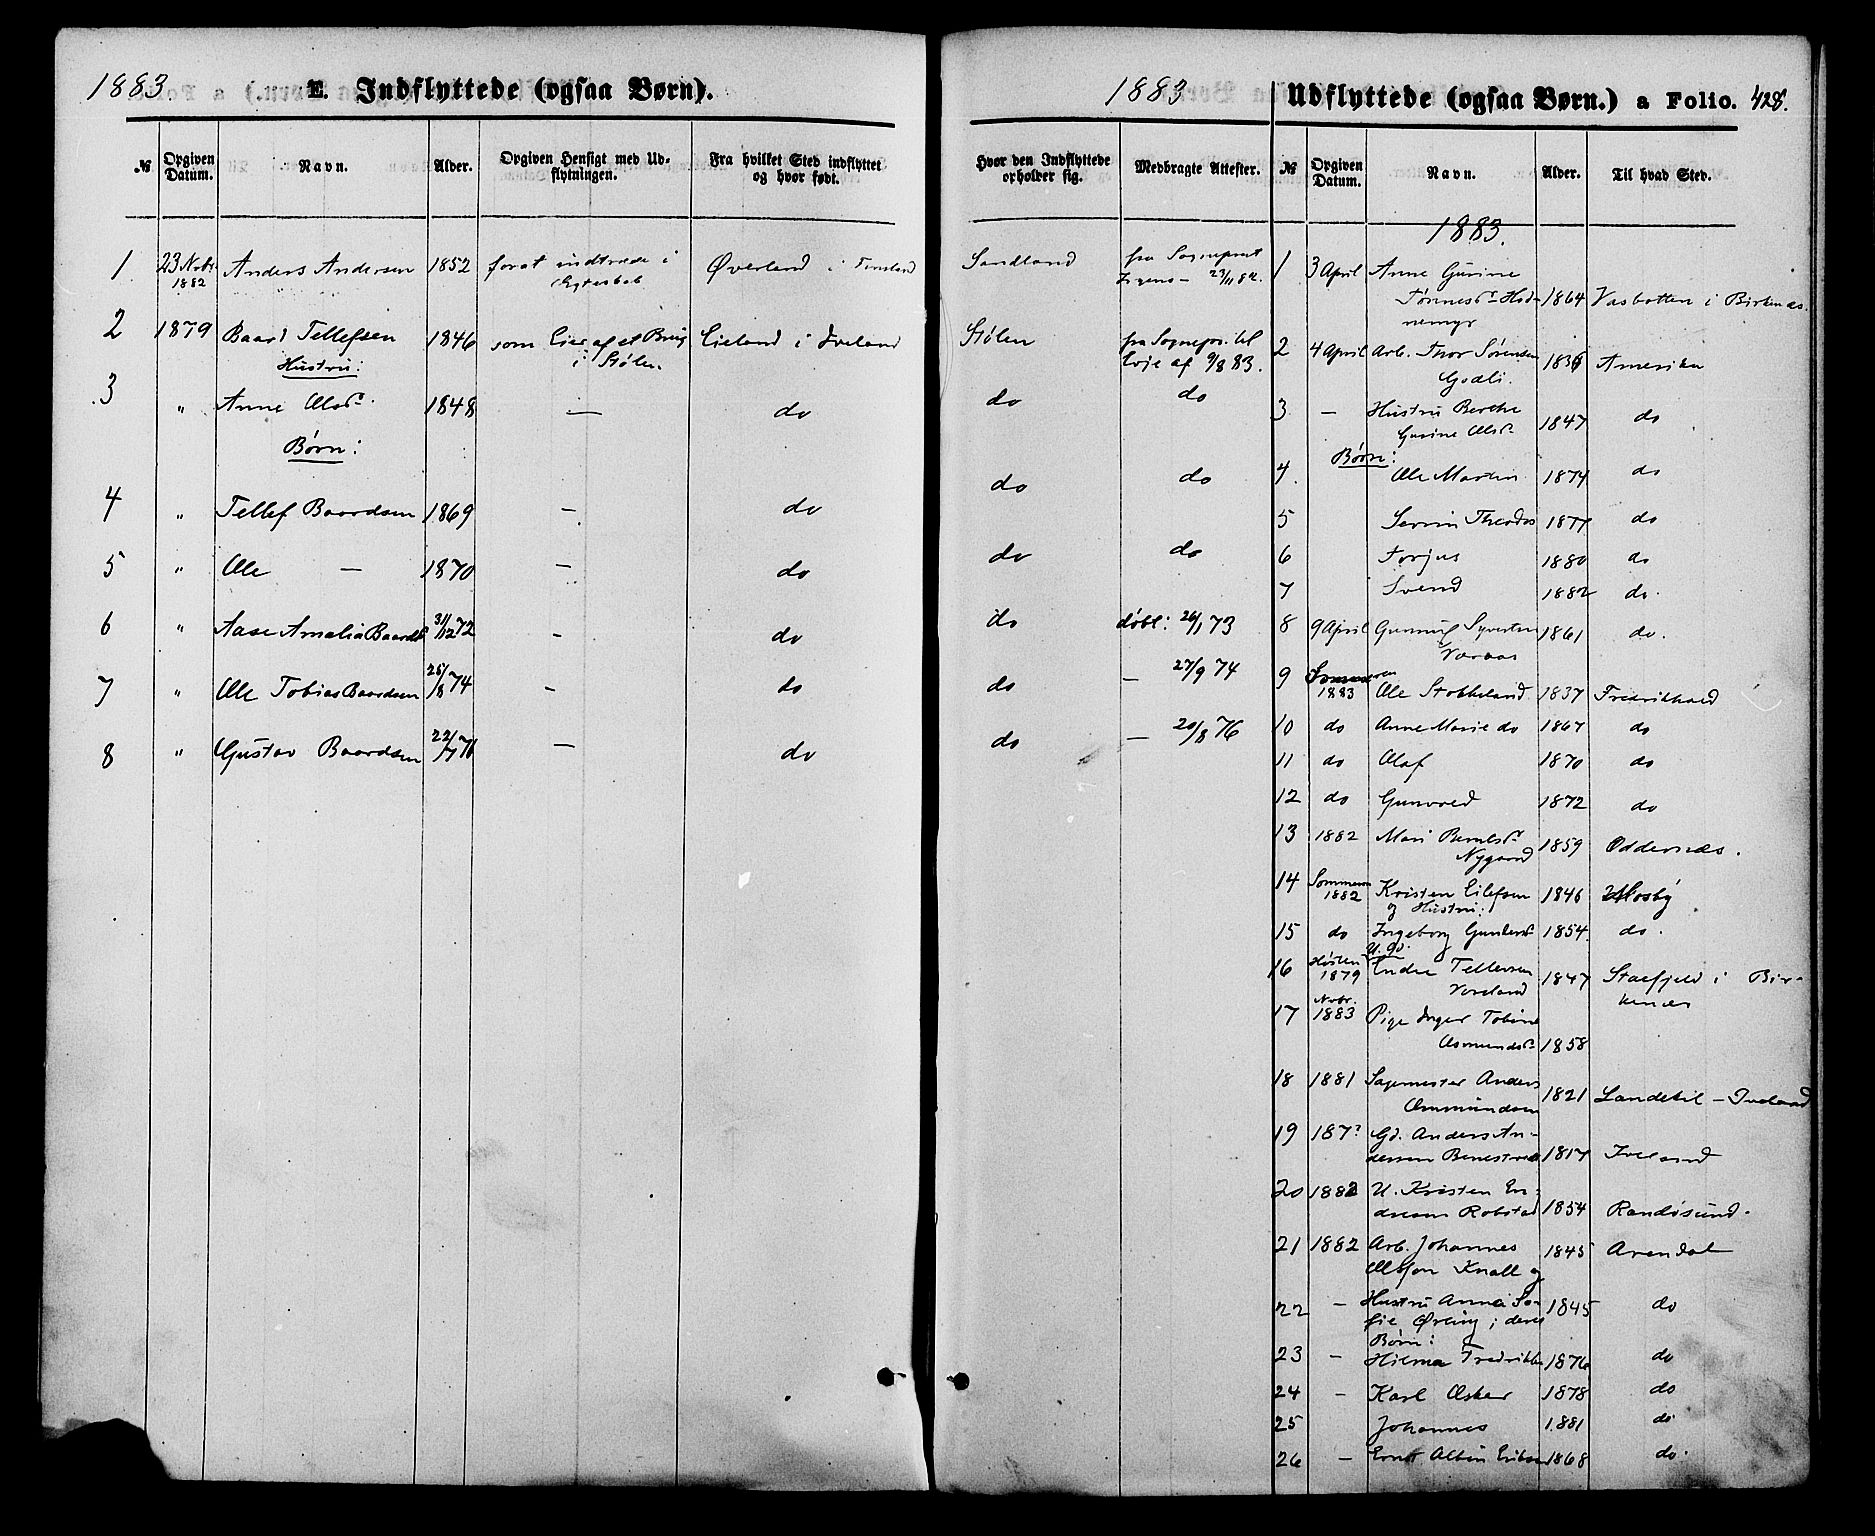 1883. E. Indflyttede (ogsaa Børn).
№ Opgiven Datum. Navn. Alder. Opgiven Hensigt med Udflytningen. Fra hvilket Sted indflyttet og hvor født.
1 23 Nvbr. 1882 Anders Andersen 1852 forat indtræde i Egteskab Øverland i
2 1879 Baard Tellefsen 1846 som Eier af et Brug i Stølen Eieland i Iveland
Hustru:
3 " Anne Olsd. 1848 — do
Børn:
4 " Tellef Baardsen 1869 — do
5 " Ole — 1870 — do
6 " Aase Amalia Baardsd 31/12 72 - do
7 " Ole Tobias Baardsen 25/8 74 - do
8 " Gustav Baardsen 22/7 76 — do
1883 Udflyttede (ogsaa Børn.) a Folio. 428.
Hvor den Indflyttede opholder sig. Medbragte Attester.
Sandland fra Sogneprest 23/11 82.
Stølen fra Sognepr. til Evje af 9/8 83.
do do
do do
do do
do døbt: 26/1 73
do — 27/9 74
do — 20/8 76
№ Opgiven Datum. Navn. Alder. Til hvad Sted.
1883.
1 3 April Anne Gurine
Tønnesd. 1864 Vasbotten i Birkenæs.
2 4 April Arb. Thor Sørensen
Godli. 1836 Amerika
3 — Hustru Berthe
Gurine Olsd. 1847 do
Børn:
4. Ole Martin 1874 do
5 Theodor 1877 do
6 Torjus 1880 do
7 Svend 1882 do.
8 9 April Syvertsen
1861 do.
9 Sommeren
1883 Ole Stokkeland 1837 Fredrikhald
10 do Anne Marie do 1867 do
11 do Olaf 1870 do
12 do Gunvald 1872 do
13 1882 Mari
Nygaard 1859 Oddernæs.
14 Sommeren
1882 Kristen Eilefsen
og Hustru: 1846 Mosby
15 do Ingeborg Gundersd. 1854. do.
16 Høsten
1879 Endre Tellefsen
1847 i Birkenæs
17 Nvbr.
1883 Pige Inger Tobine
Asmundsd. 1858
18 1881 Sagmester Anders
Ommundsen 1821 Landetil — Iveland
19 187? Gd. Anders Andersen
Benestvedt 1817 Iveland
20 1882 U. Kristen Endresen
Robstad 1854 Randøsund.
21 1882 Arb. Johannes
Olsson Knall og 1845 Arendal
22 — Hustru Anna Sofie
Ørling; deres 1845 do
Børn:
23 — Hilma Fredrikke 1876 do
24 — Karl Oskar 1878 do
25 Johannes 1881 do
26 — Ernst Albin 1868 do.